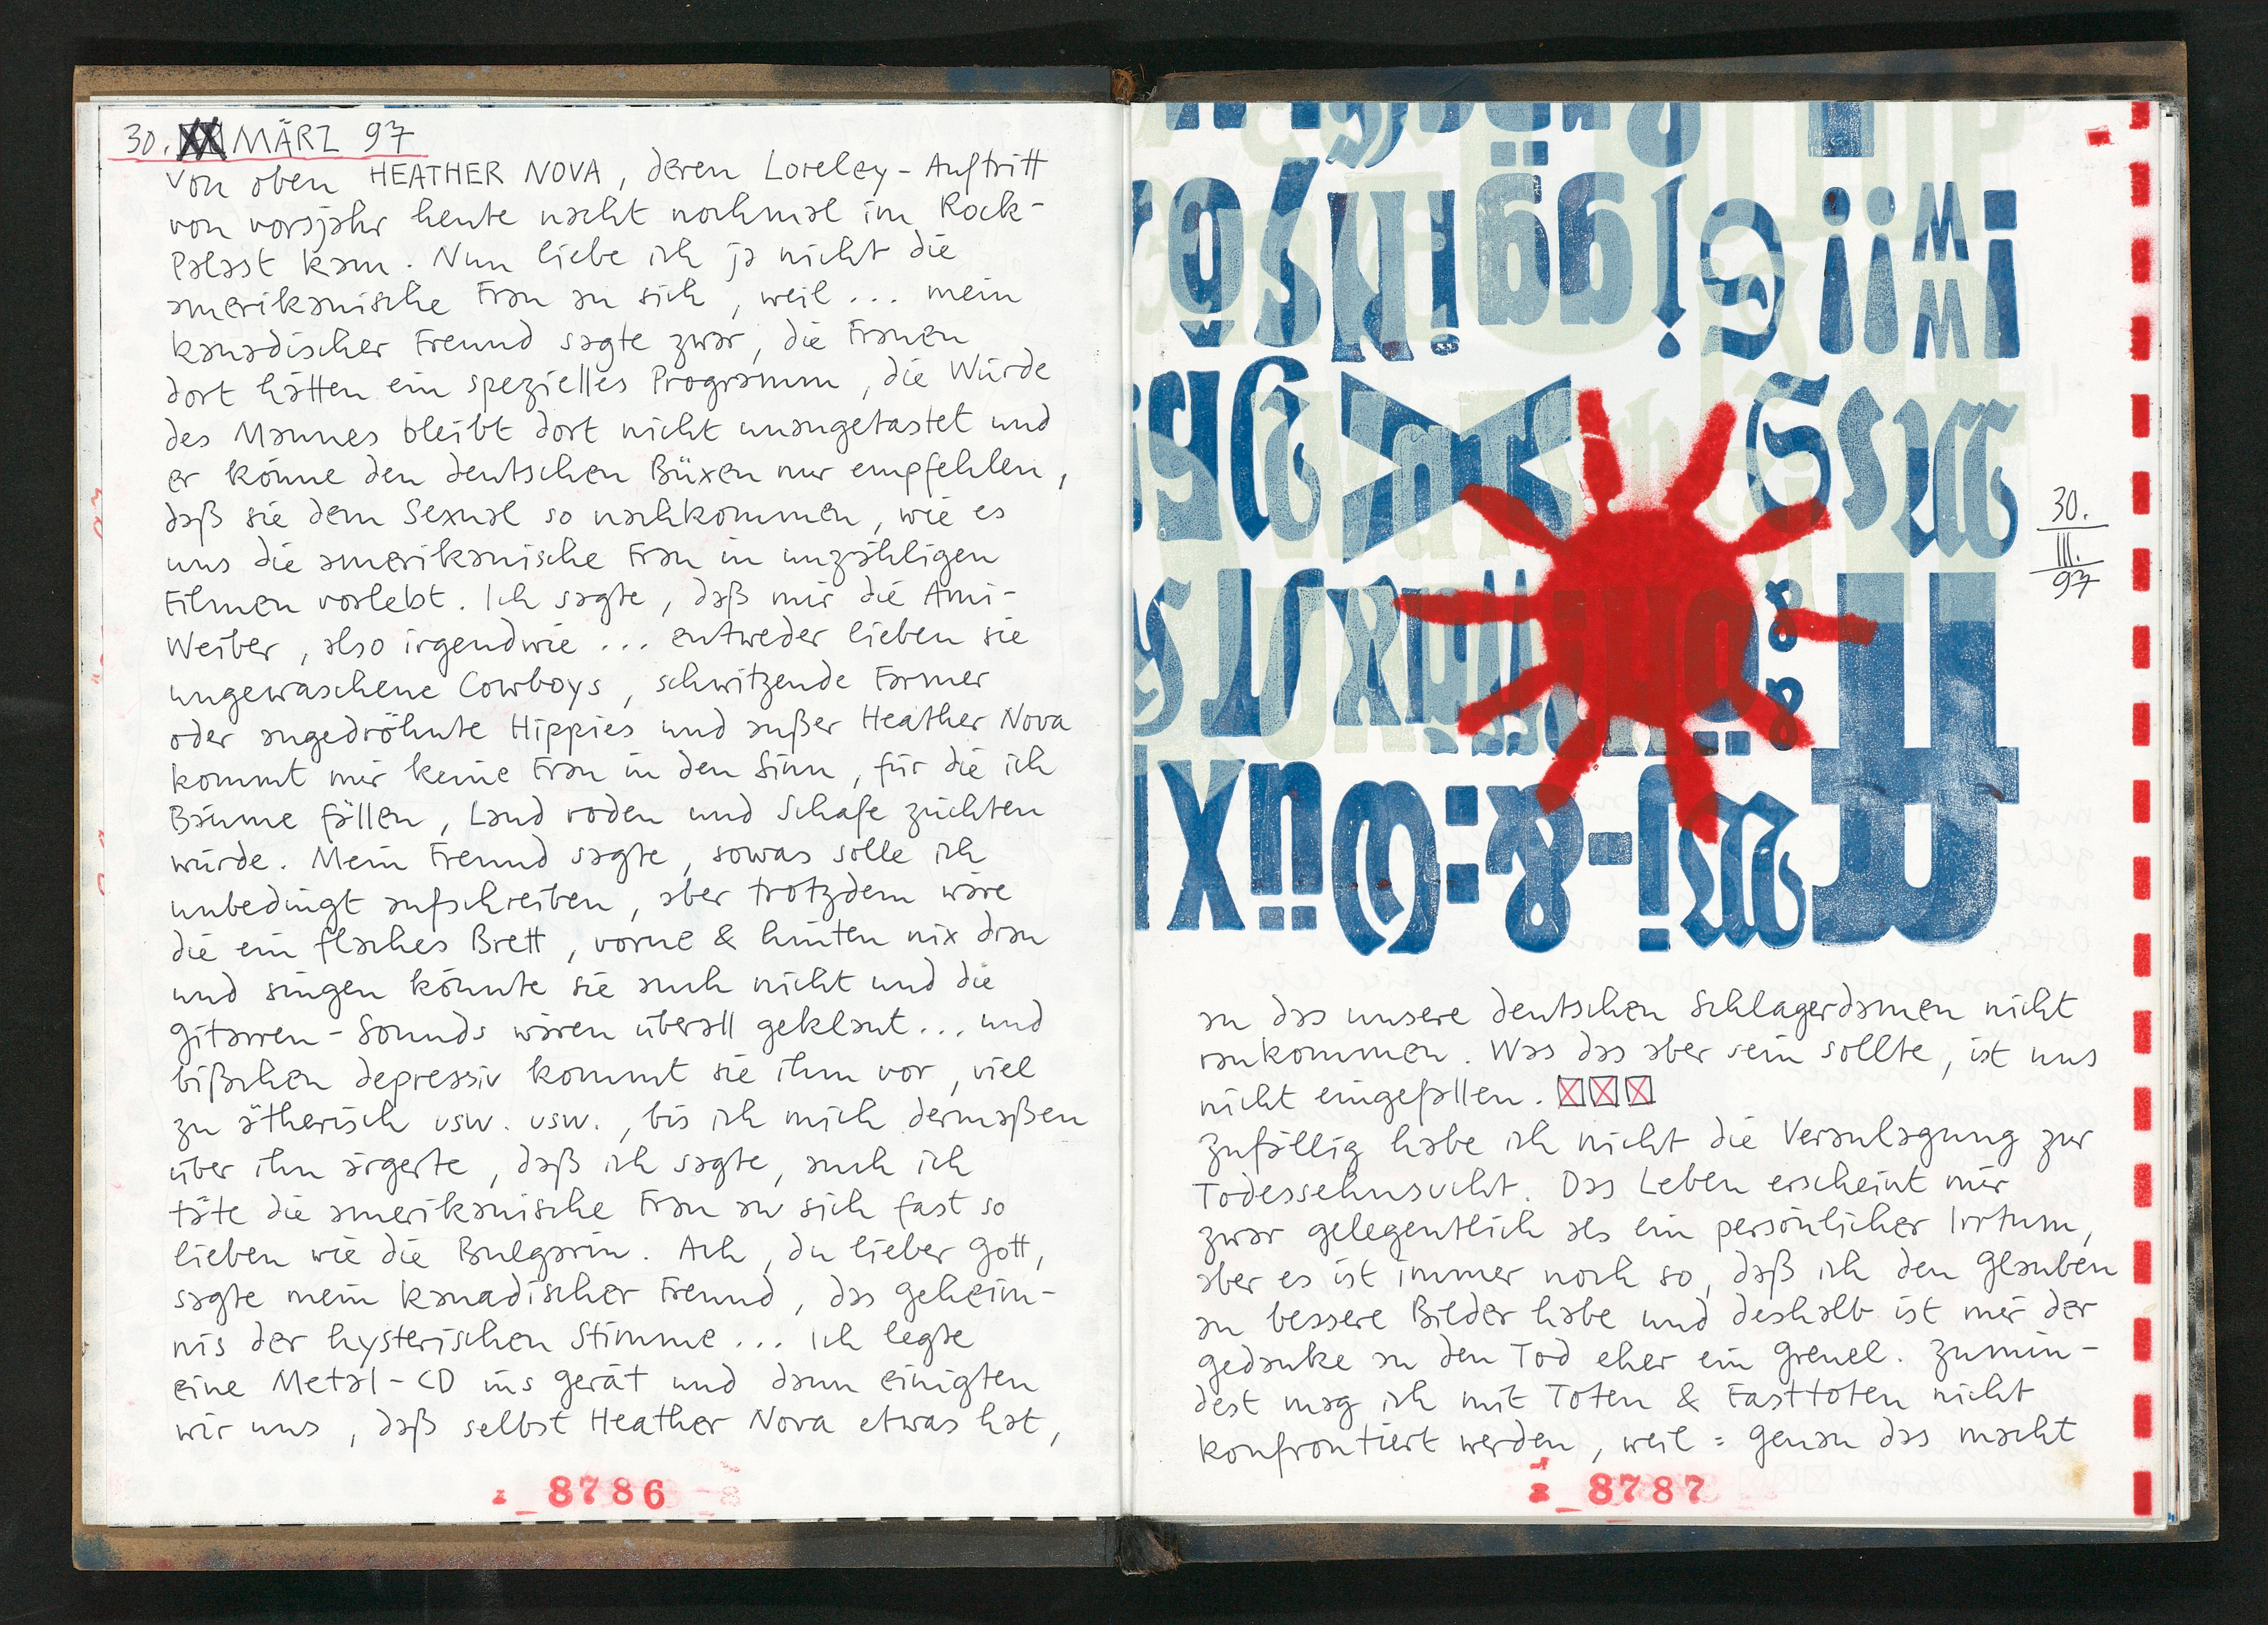 30. MÄRZ 97
von oben HEATHER NOVA, deren Loreley-Auftritt
von vorsjahr heute nacht nochmal im Rock-
Palast kam. Nun liebe ich ja nicht die
amerikanische Frau an sich, weil... mein
kanadischer Freund sagte zwar, die Frauen
dort hätten ein spezielles Programm, die Würde
des Mannes bleibt dort nicht unangetastet und
er könne den deutschen Büxen nur empfehlen,
daß sie dem Sexual so nachkommen, wie es
uns die amerikanische Frau in unzähligen
Filmen vorlebt. Ich sagte, daß mir die Ami-
Weiber, also irgendwie... entweder lieben sie
ungewaschene Cowboys, schwitzende Farmer
oder angedröhnte Hippies und außer Heather Nova
kommt mir keine Frau in den Sinn, für die ich
Bäume fällen, Land roden und Schafe züchten
würde. Mein Freund sagte, sowas solle ich
unbedingt aufschreiben, aber trotzdem wäre
die ein flaches Brett, vorne & hinten nix dran
und singen könnte sie auch nicht und die
Gitarren-Sounds wären überall geklaut... und
bißchen depressiv kommt sie ihm vor, viel
zu ätherisch usw. usw., bis ich mich dermaßen
über ihn ärgerte, daß ich sagte, auch ich
täte die amerikanische Frau an sich fast so
lieben wie die Bulgarin. Ach, du lieber Gott,
sagte mein kanadischer Freund, das Geheim-
nis der hysterischen Stimme... Ich legte
eine Metal-CD ins Gerät und dann einigten
wir uns, daß selbst Heather Nova etwas hat,
8786
30.
III.
97
an das unsere deutschen Schlagerdamen nicht
rankommen. Was das aber sein sollte, ist uns
nicht eingefallen.
Zufällig habe ich nicht die Veranlagung zur
Todessehnsucht. Das Leben erscheint mir
zwar gelegentlich als ein persönlicher Irrtum,
aber es ist immer noch so, daß ich den Glauben
an bessere Bilder habe und deshalb ist mir der
Gedanke an den Tod eher ein Greuel. Zumin-
dest mag ich mit Toten & Fasttoten nicht
konfrontiert werden, weil: genau das macht
8787